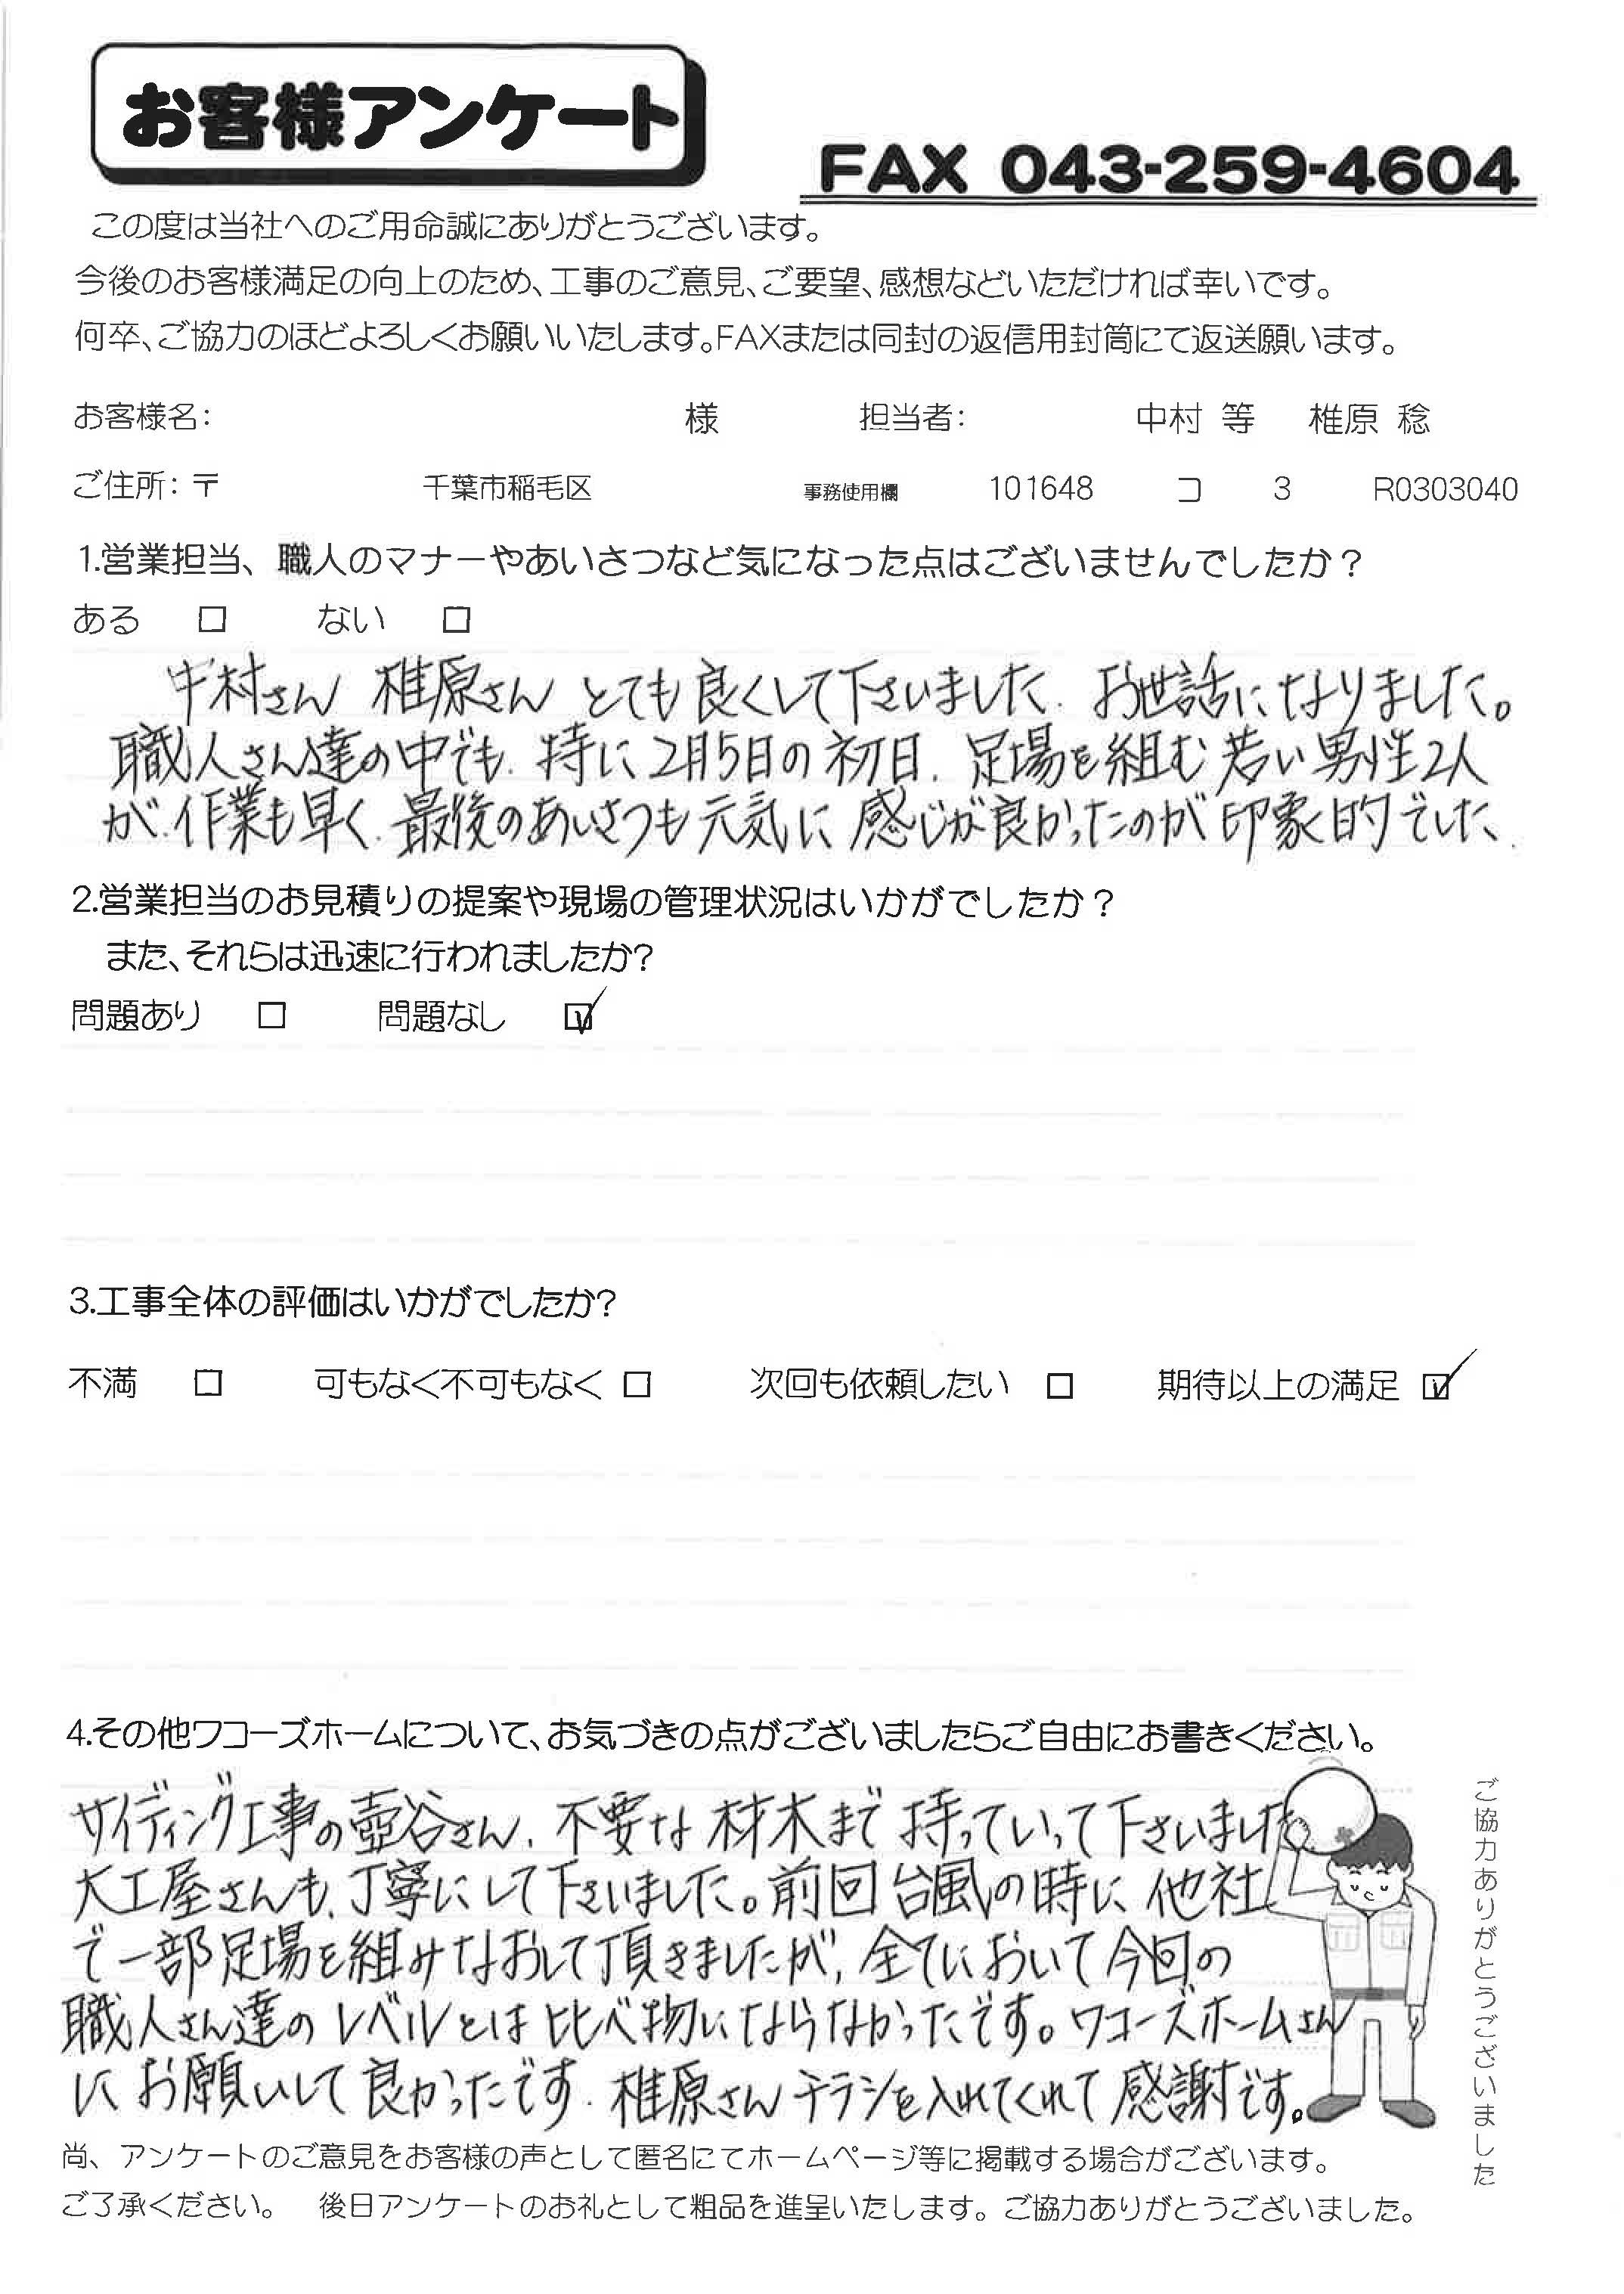 お客様アンケート
FAX 043-259-4604
この度は当社へのご用命誠にありがとうございます。
今後のお客様満足の向上のため、工事のご意見、ご要望、感想などいただければ幸いです。
何卒、ご協力のほどよろしくお願いいたします。FAXまたは同封の返信用封筒にて返送願います。
お客様名： 様 担当者： 中村 等 椎原 稔
ご住所：〒 千葉市稲毛区 事務使用欄 101648 コ 3 R0303040
1.営業担当、職人のマナーやあいさつなど気になった点はございませんでしたか？
ある □ ない □
中村さん 椎原さん とても良くして下さいました. お世話になりました。
職人さん達の中でも. 特に 2月5日の初日. 足場を組む若い男性2人
が.作業も早く. 最後のあいさつも元気に 感じが良かったのが印象的でした、
2.営業担当のお見積りの提案や現場の管理状況はいかがでしたか？
また、それらは迅速に行われましたか?
問題あり □ 問題なし ☑
3.工事全体の評価はいかがでしたか?
不満 □ 可もなく不可もなく □ 次回も依頼したい □ 期待以上の満足 ☑
4.その他ワコーズホームについて、お気づきの点がございましたらご自由にお書きください。
サイディング工事の壺谷さん. 不要な材木まで持っていって下さいました
大工屋さんも、丁寧にして下さいました。前回台風の時に、他社
で一部足場を組みなおして頂きましたが, 全てにおいて今回の
職人さん達のレベルとは比べ物にならなかったです。ワコーズホームさん
にお願いして良かったです. 椎原さんチラシを入れてくれて感謝です。
ご協力ありがとうございました
尚、アンケートのご意見をお客様の声として匿名にてホームページ等に掲載する場合がございます。
ご了承ください。 後日アンケートのお礼として粗品を進呈いたします。ご協力ありがとうございました。